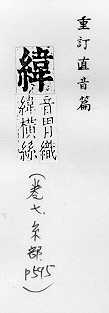 重訂直音篇
緯
音胃織
緯橫絲
(卷七.糸部